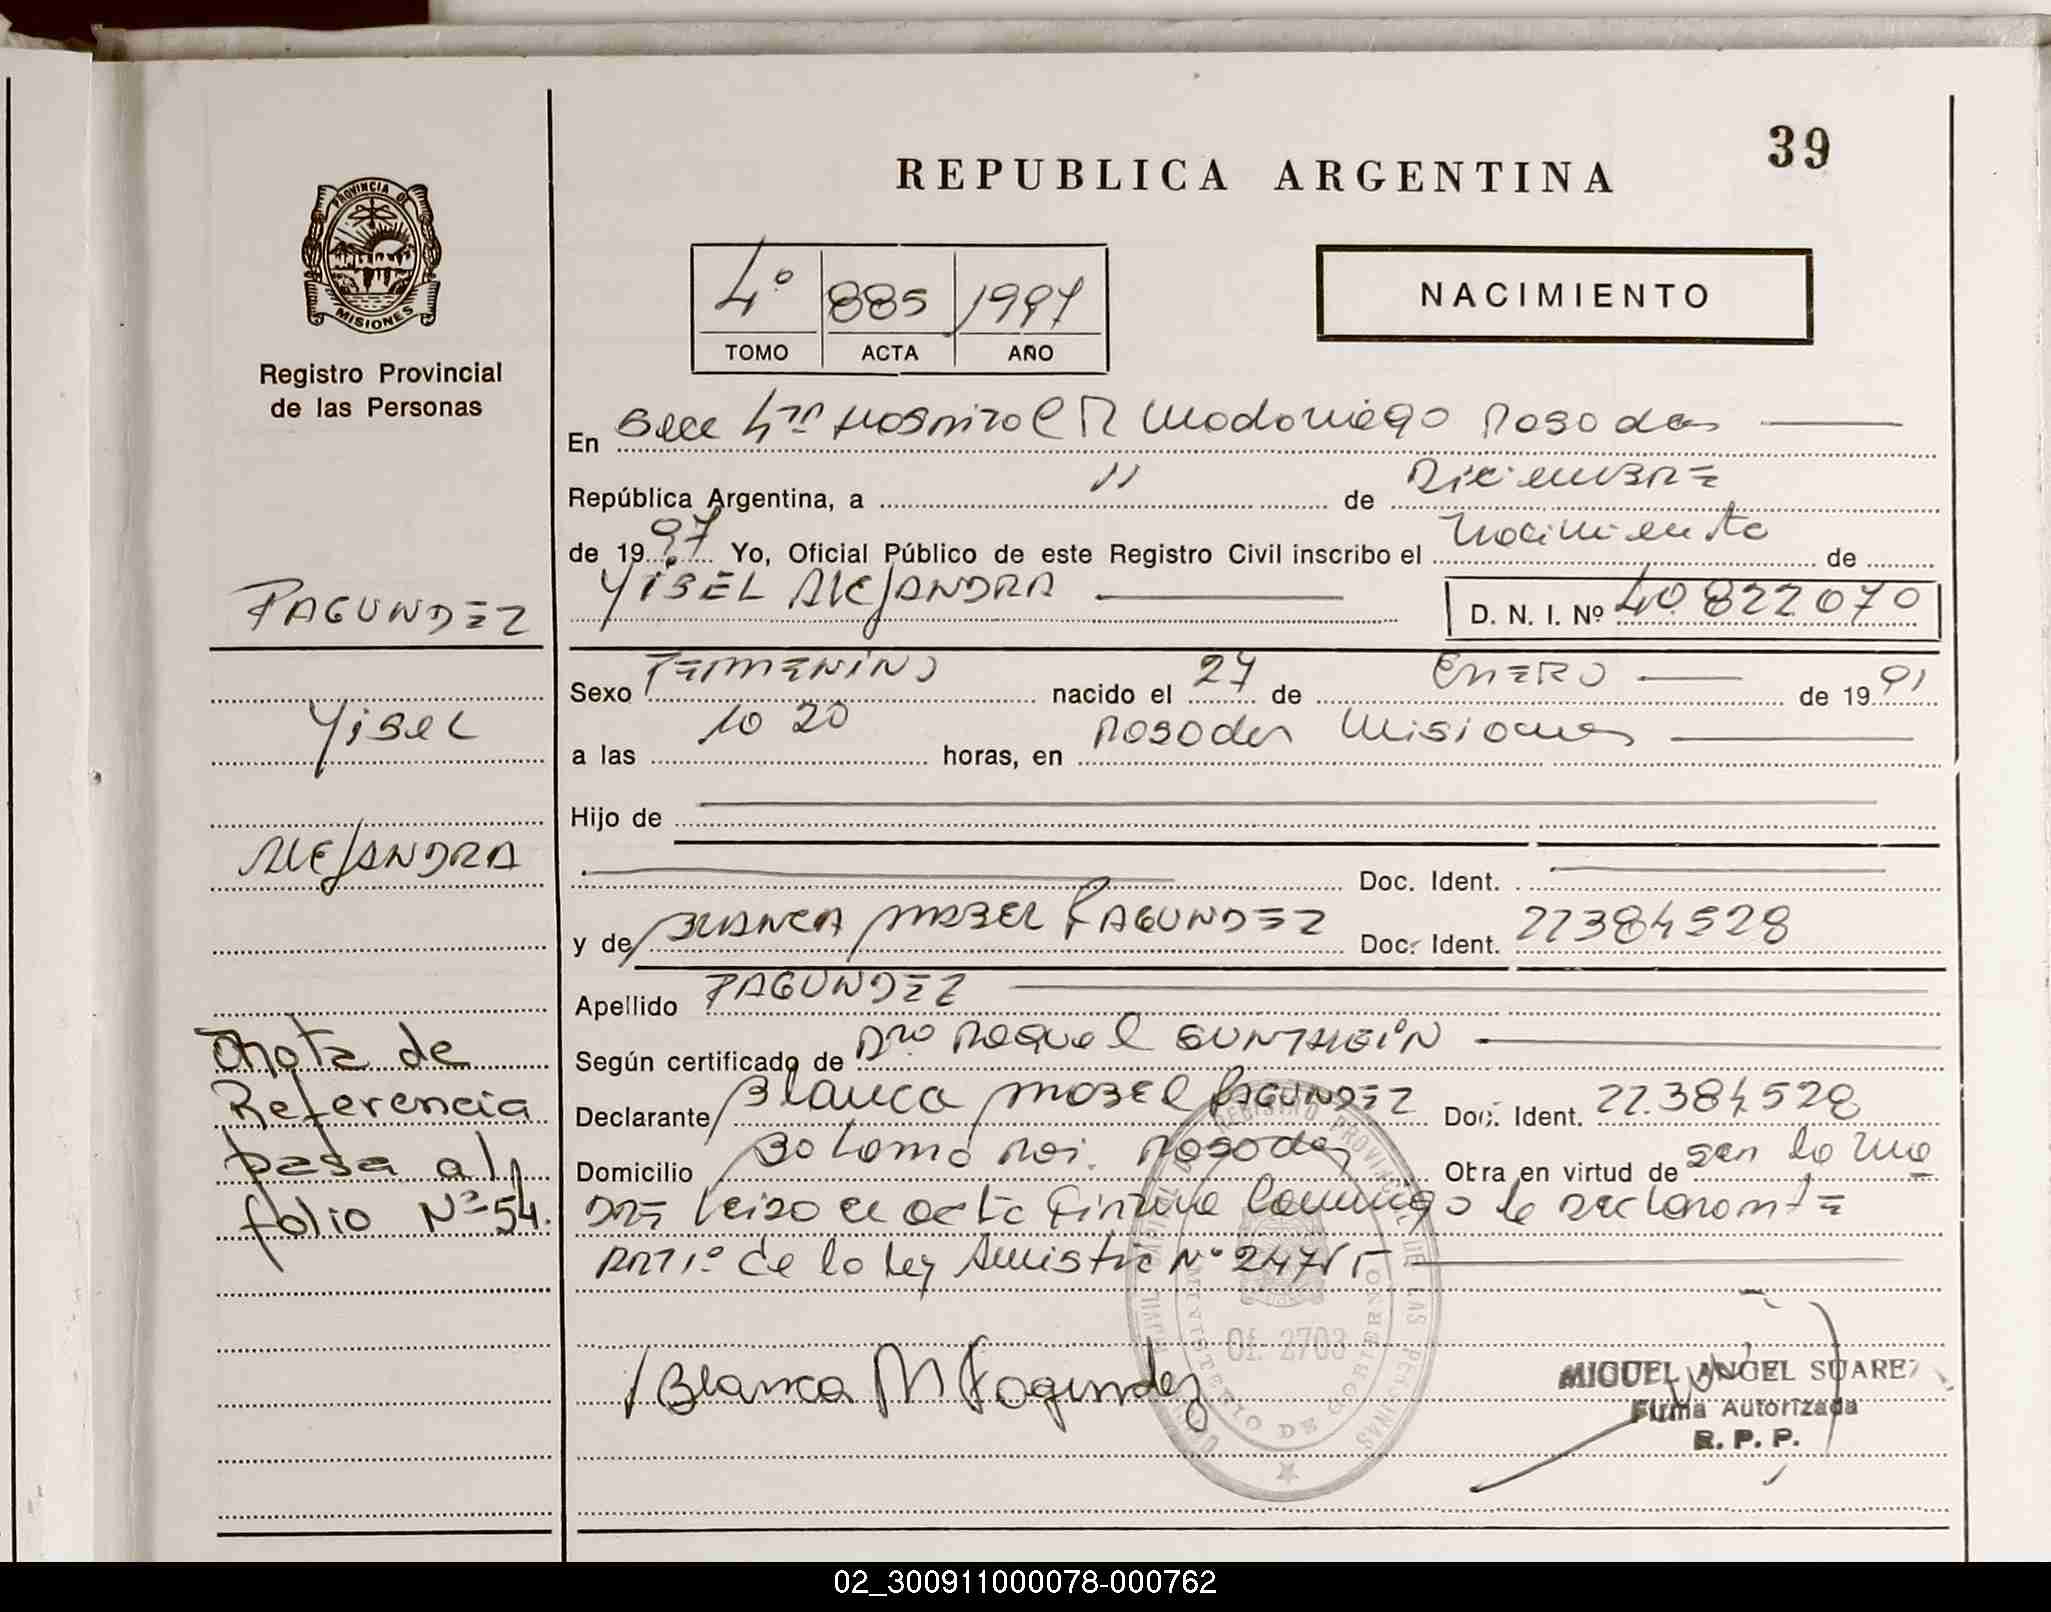 39
REPUBLICA ARGENTINA
PROVINCIA DE
MISIONES
Registro Provincial
de las Personas
4º 885 1997
TOMO ACTA AÑO
NACIMIENTO
En Secc 4ta Hospital R Madariaga Posadas
República Argentina, a 11 de Diciembre
de 1997 Yo, Oficial Público de este Registro Civil inscribo el Nacimiento de
YISEL ALEJANDRA D. N. I. Nº 40.822070
FAGUNDEZ
Sexo FEMENINO nacido el 27 de ENERO de 1991
Yisel
a las 10 20 horas, en Posadas Misiones
Hijo de
ALEJANDRA
Doc. Ident.
y de BLANCA MABEL FAGUNDEZ Doc. Ident. 22384528
Apellido FAGUNDEZ
Según certificado de Dra Raquel
Declarante Blanca MABEL FAGUNDEZ Doc. Ident. 22.384.528
Domicilio Posadas Otra en virtud de ser la ma
DRE leido el acta firma conmigo la declarante
ART 1º de la ley Amistia Nº
nota de
Referencia
pasa al
folio Nº 54.
REGISTRO PROVINCIAL DE LAS PERSONAS
MINISTERIO DE GOBIERNO
Of. 2703
Blanca M Fagundez
MIGUEL ANGEL SUAREZ
Firma Autorizada
R. P. P.
02_300911000078-000762